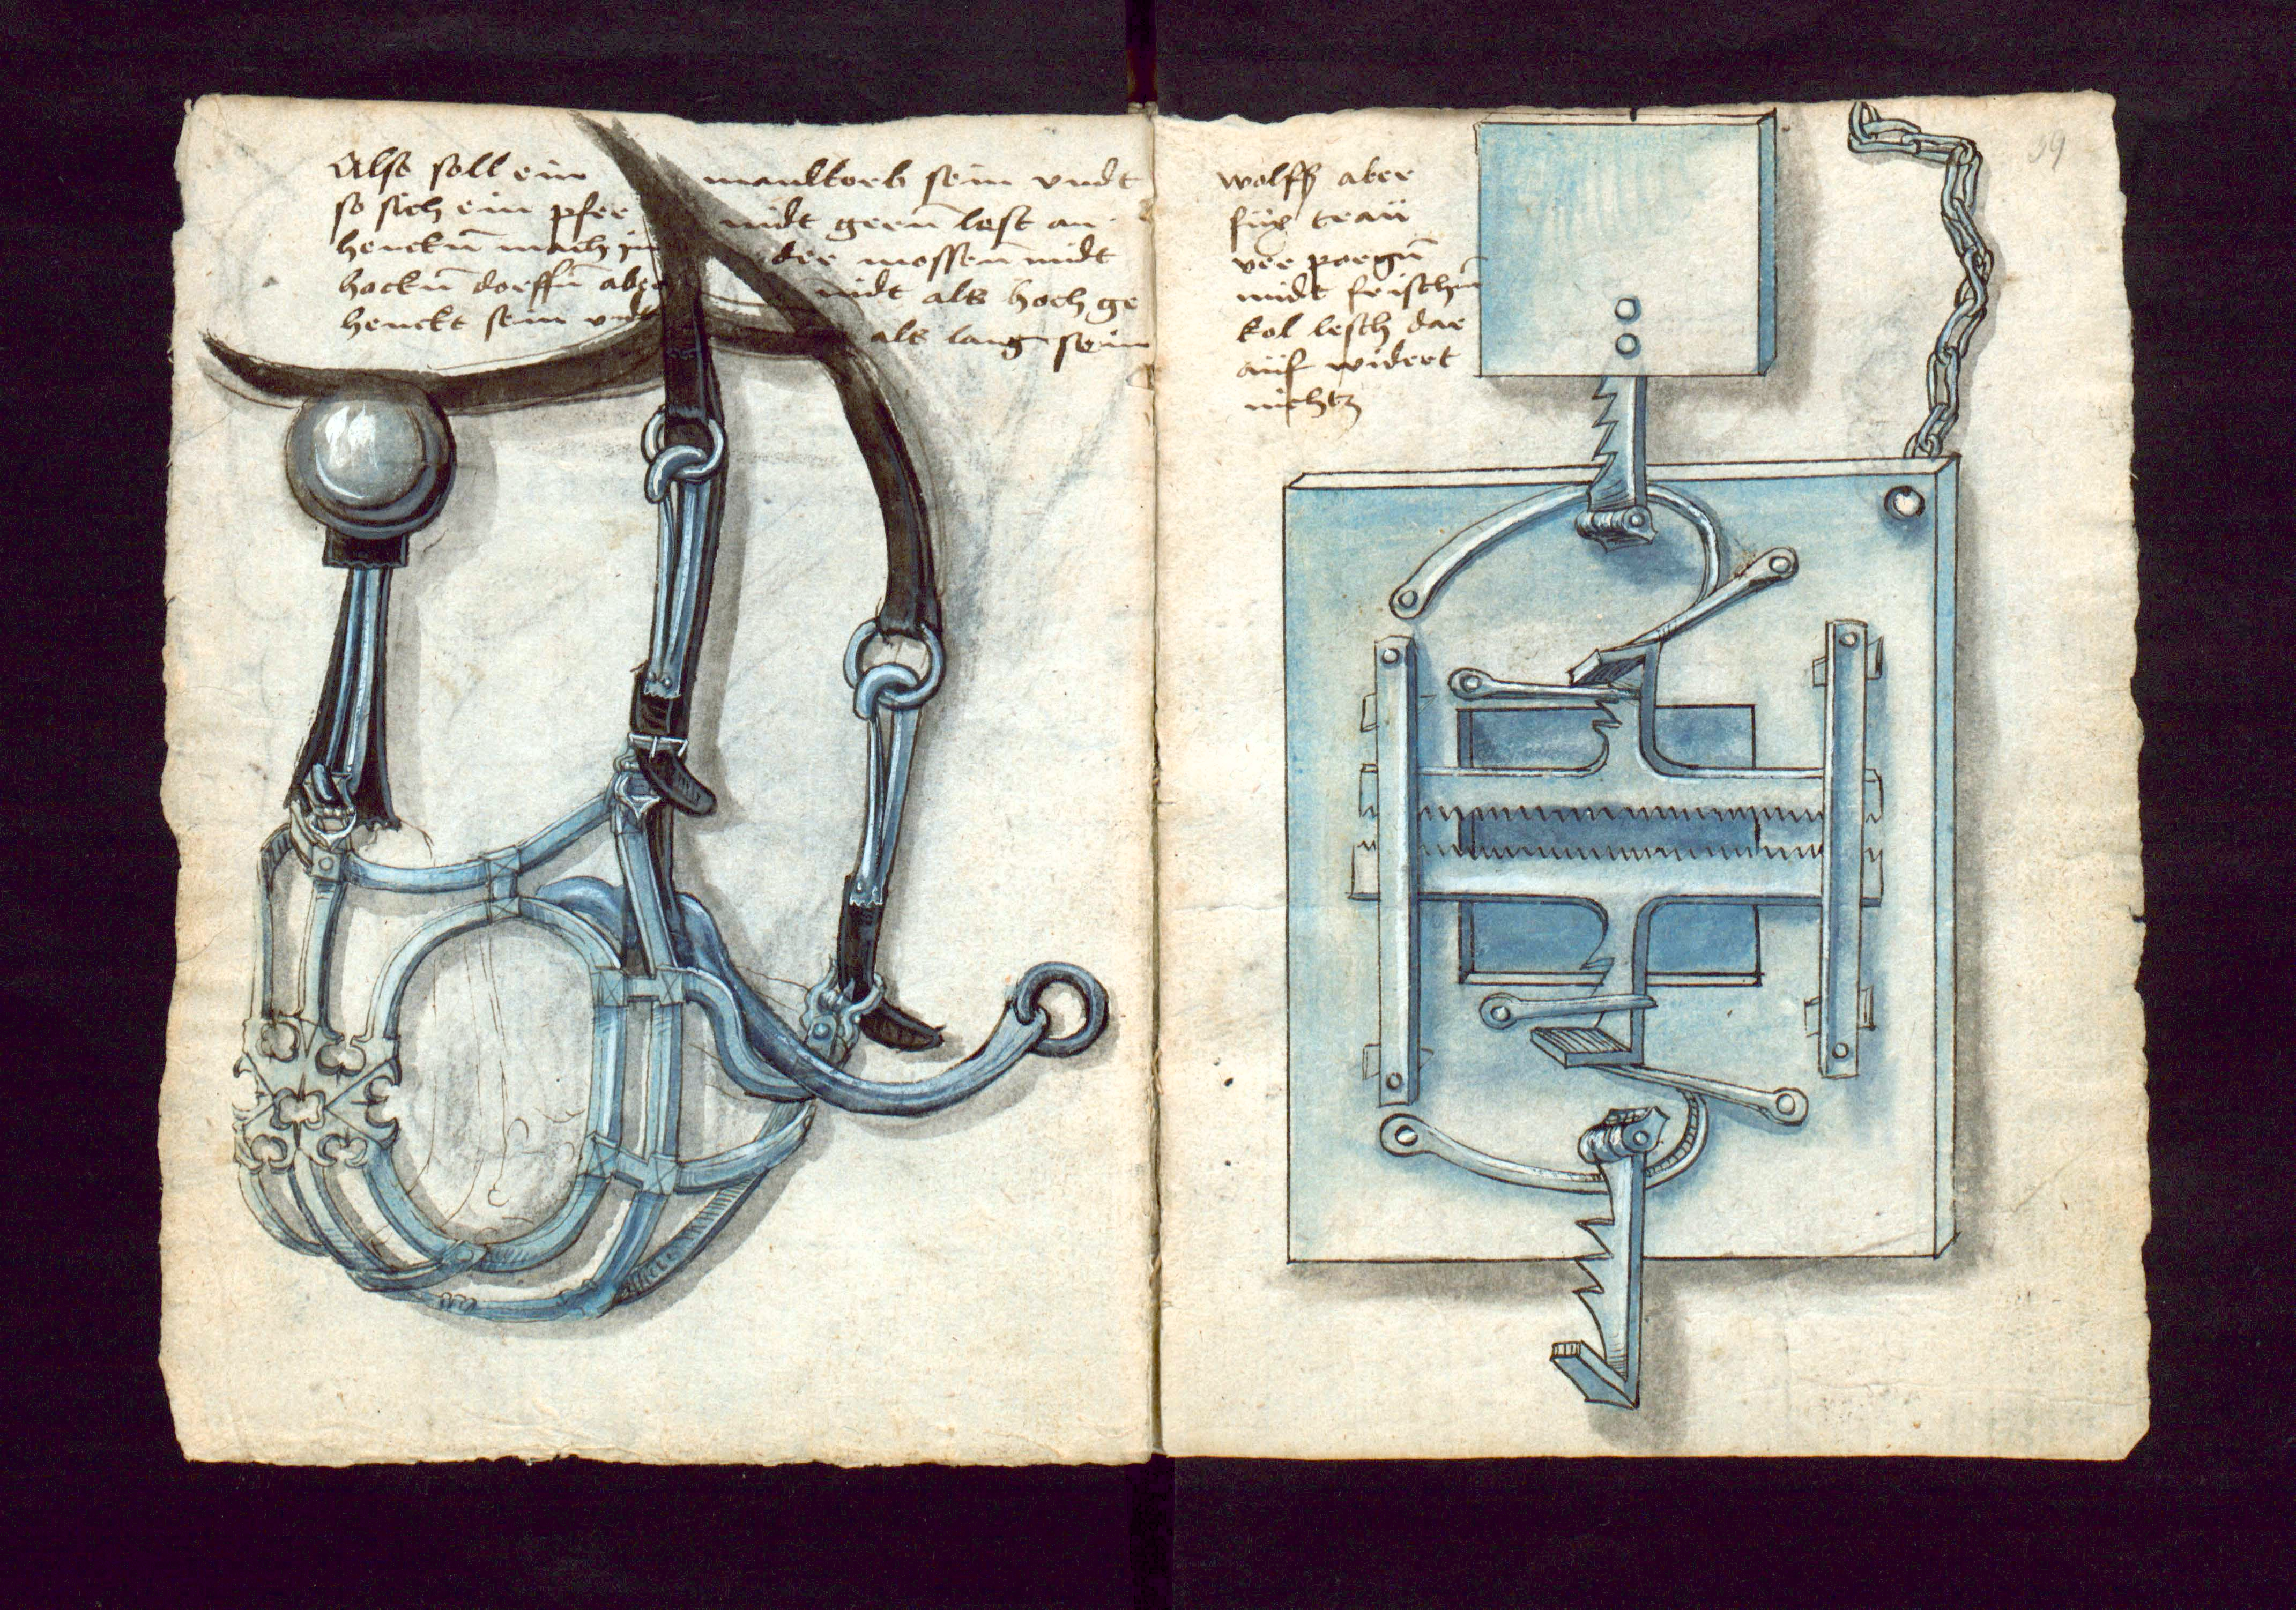 Also soll ein maulkorb sein vndt
so sich ein pfer nidt geern̄ lest an
henckn̄ mach in der mossen̄ nidt
hockn̄ doerffn̄ abge nidt als hoch ge
henckt sein vndt als lang sein
wolff aber
füx trau
ver poregn̄
nidt frischn̄
kol lesch dar
auf widert
nichtz
59